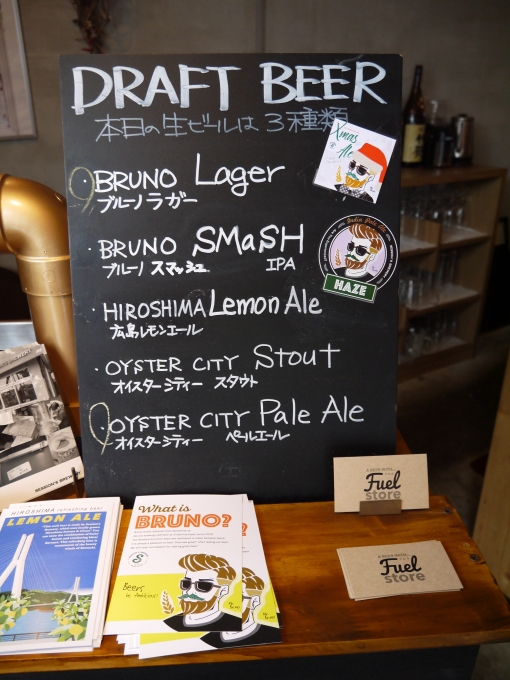 DRAFT BEER
本日の生ビールは3種類
Xmas
Ale
BRUNO Lager
ブルーノ ラガー
・BRUNO SMaSH
ブルーノ スマッシュ IPA
India Pale Ale
HAZE
・HIROSHIMA Lemon Ale
広島レモンエール
・OYSTER CITY Stout
オイスターシティー スタウト
・OYSTER CITY Pale Ale
オイスターシティー ペールエール
SESSION'S BREW
HIROSHIMA refreshing beer
LEMON ALE
What is
BRUNO?
Beers
A BEER WITH
Fuel
store
A BEER WITH
Fuel
store